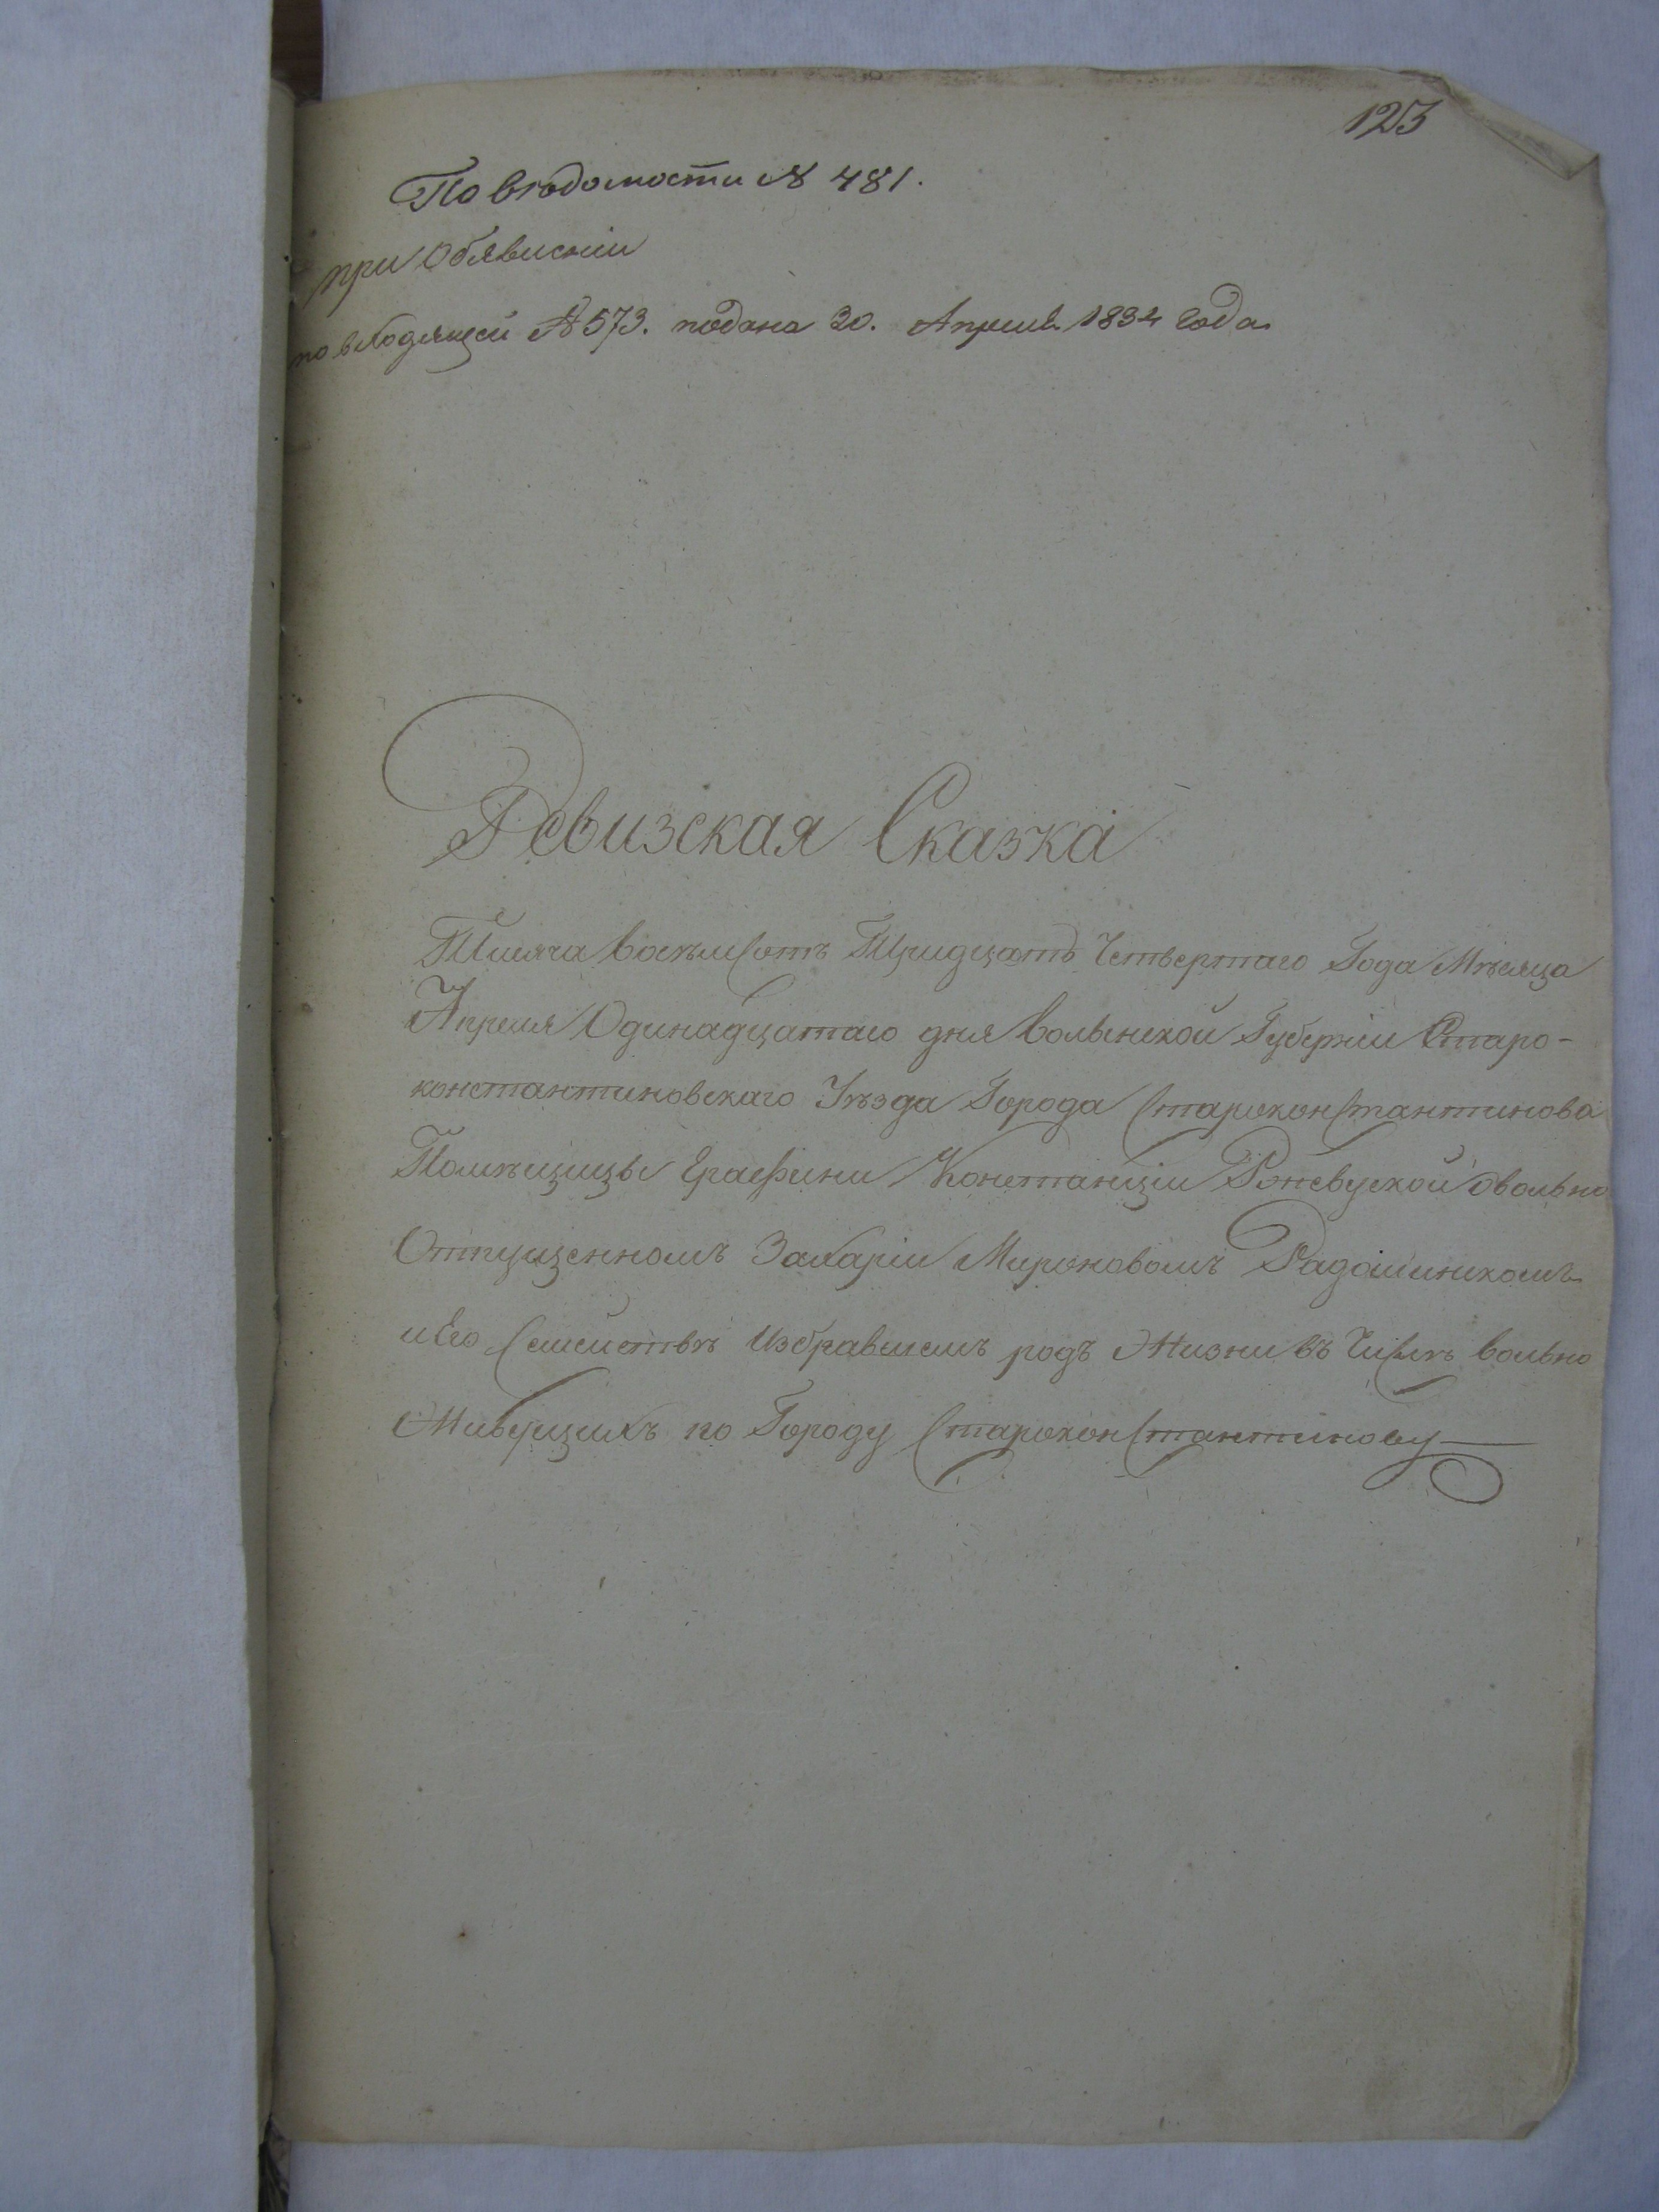 123
По ведомости № 481.
при Обявлении
по входящей № 573. подана 30. Апреля 1834 года
Ревизская Сказка
Тисяча восемьсотъ Тридцать Четвертаго Года Мѣсяца
Апреля Одинадцатаго дня Волынской Губернии Старо-
константиновскаго Уѣзда Города Староконстантинова
Помѣщицы Графини Констанции Ржевуской о вольно
Отпущенномъ Захарiи Мироновомъ
и Его Семействѣ Избравшемъ родъ Жизни въ Числѣ вольно
Живущихъ по Городу Староконстантинову